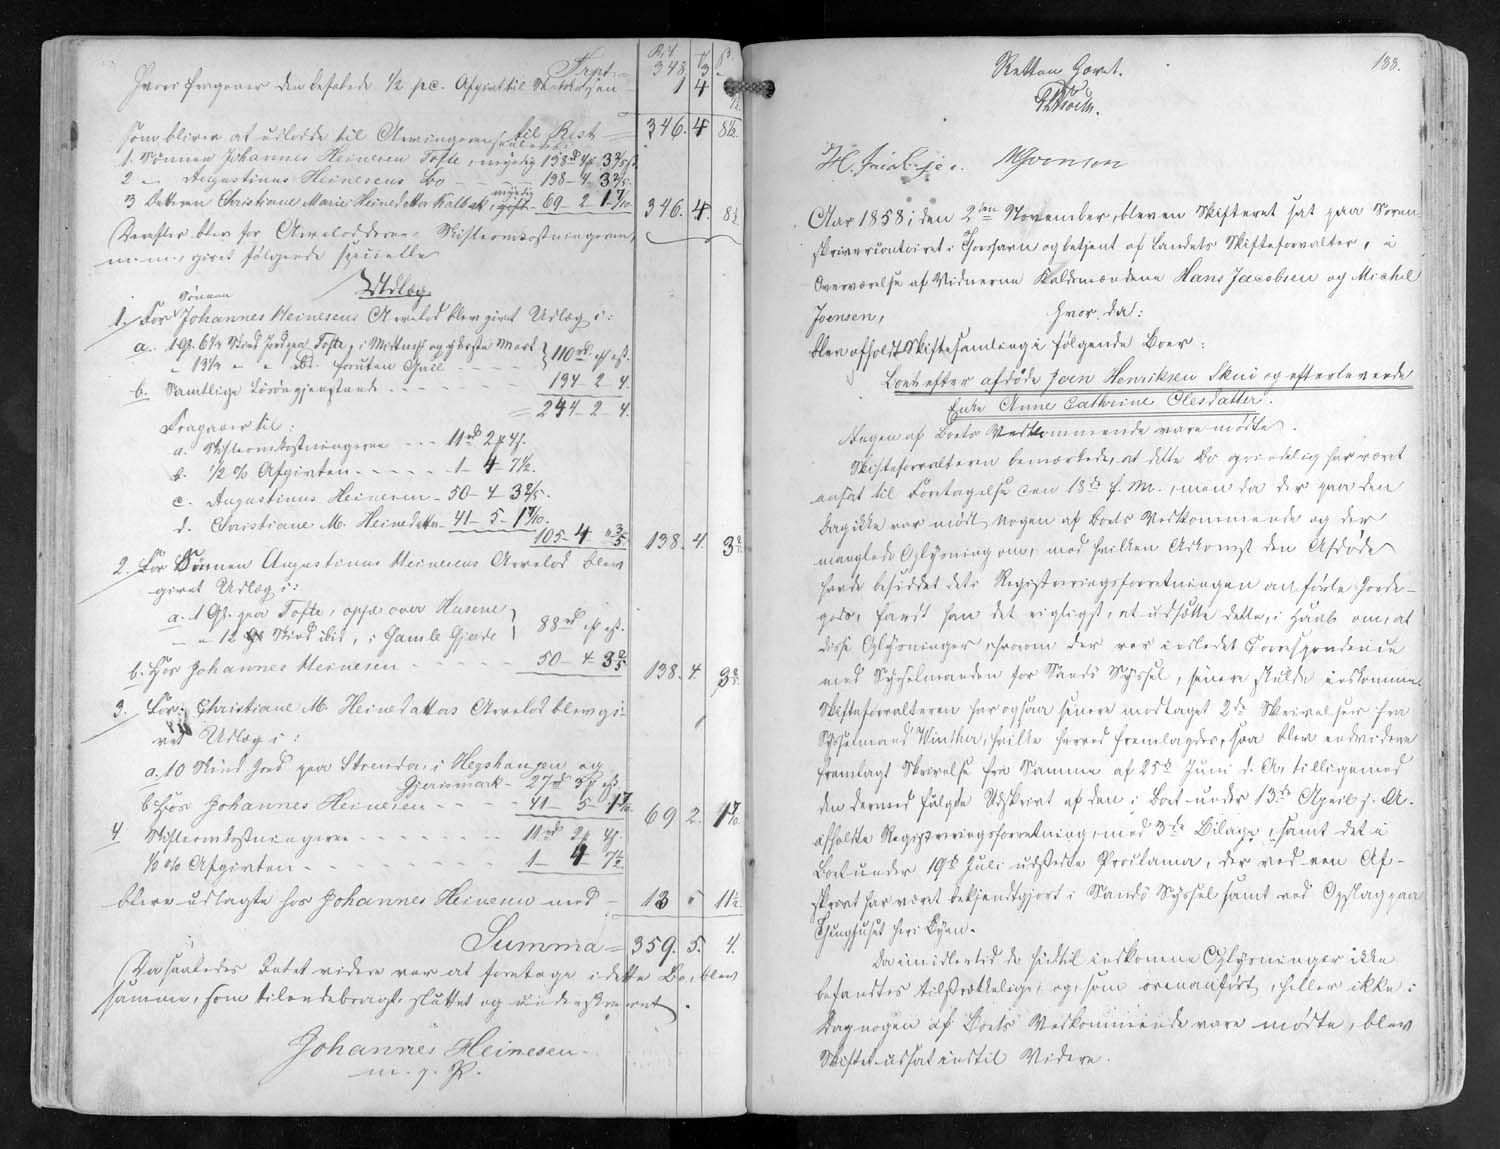 Rd. ₥ ß
Trpt. 348. 3 "
Hvori fragaaer den befalede 1/2 pc. Afgivt til Statskassen 1 4 7½
som bliver at udlodde til Arvingerne til Rest = 346. 4. 8½
saaledes:
1. Sønnen Johannes Heinesen Tofte, myndig 138 rd 4 ₥ 3 2/5 ß
2 " Augustinus Heinesens Lo - - - 138 - 4 3 2/5.
3 Datteren Christiane Marie Heinedatter Kalbak, myndig 69 - 2 1 7/10. 346. 4. 8½
Derefter blev for Arvelodderne, Skifteomkostningerne,
m. m., givet følgende specielle
Udlæg
1. For Sønnen Johannes Heinesens Arvelod blev givet Udlæg i:
a. 1 G. 6½ Skind Jord paa Tofte, i Midtmyst og yderste Mark
" 13½ " " ibd. foruden Hejle - - - 110 rd. " ₥ " ß.
b. Samtlige Løsøregjenstande - - - 134 - 2 - 4.
= 244 - 2 - 4.
Fragaaer til:
a. Skifteomkostningerne - - - 11 rd 2 ₥ 4 ß.
b. 1/2 % Afgivten - - - - - 1 - 4 - 7½.
c. Augustinus Heinesen - 50 - 4 - 3 2/5.
d. Christiane M. Heinedatter - 41 - 5 - 1 7/10.
105 - 4 - " 3/5 138 - 4. 3 2/5
2. For Sønnen Augustinus Heinesens Arvelod blev
givet Udlæg i:
a. 1 G. paa Tofte, oppe over Husene
" 12 Skind ibid, i Gamle Gjerde 88 rd " ₥ " ß.
b. Hos Johannes Heinesen - - - - 50 - 4 - 3 2/5 138. 4. 3 2/5
3. For Christiane M. Heinedatters Arvelod blev gi-
vet Udlæg i:
a. 10 Skind Jord paa Strenda, i Hegshaugen og
Gjerismark - 27 rd 3 ₥ " ß.
b Hos Johannes Heinesen - - - 41 - 5 - 1 7/10. 69 2. 1 7/10.
4 Skifteomkostningerne - - - - - - - 11 rd 2 ₥ 4 ß
1/2 % Afgivten - - - - - - - - 1 - 4 - 7½
bleve udlagte hos Johannes Heinesen med - 13 " 11½
Summa = 359. 5. 4.
Da saaledes Intet videre var at foretage i dette Bo, blev
samme, som tilendebragt, sluttet og underskrevet.
Johannes Heinesen
m. f. P.
188.
Retten Hævet.
H. Müller.
H. Jacobsen. MJoensen
Aar 1858, den 2den November, blev Skifteret sat paa Soren-
skrivercontoiret i Thorshavn og betjent af Landets Skifteforvalter, i
Overværelse af Vidnerne Kaldsmændene Hans Jacobsen og Michel
Joensen, Hvor da:
blev afholdt Skiftesamling i følgende Boer:
Boet efter afdøde Joen Henriksen Skui og efterlevende
Enke Anne Cathrine Olesdatter.
Ingen af Boets Vedkommende vare mødte.
Skifteforvalteren bemærkede, at dette Bo oprindelig har været
ansat til Foretagelse den 18de f. M., men da der paa den
Dag ikke var mødt Nogen af Boets Vedkommende og der
manglede Oplysning om, med hvilken Adkomst den Afdøde
havde besiddet det i Registreringsforretningen anførte Jorde-
gods, fandt han det rigtigst, at udsætte dette, i Haab om, at
disse Oplysninger, hvorom der var indledet Correspondence
med Sysselmanden for Sandø Syssel, senere skulde indkomme.
Skifteforvalteren har ogsaa senere modtaget 2de Skrivelser fra
Sysselmand Winther, hvilke herved fremlagdes, saa blev endvidere
fremlagt Skrivelse fra Samme af 25de Juni d. A. tilligemed
den dermed fulgte Udskrivt af den i Boet under 13de April d. A.
afholdte Registreringsforretning, med 3de Bilage, samt det i
Boet under 19de Juli udstedte Proclama, der ved een Af-
skrivt har været bekjendtgjort i Sandø Syssel samt ved Opslag paa
Thinghuset her i Byen.
Da imidlertid de hidtil indkomne Oplysninger ikke
befandtes tilstrækkelige, og, som ovenanført, heller ikke i
Dag nogen af Boets Vedkommende vare mødte, blev
Skiftet udsat indtil Videre.